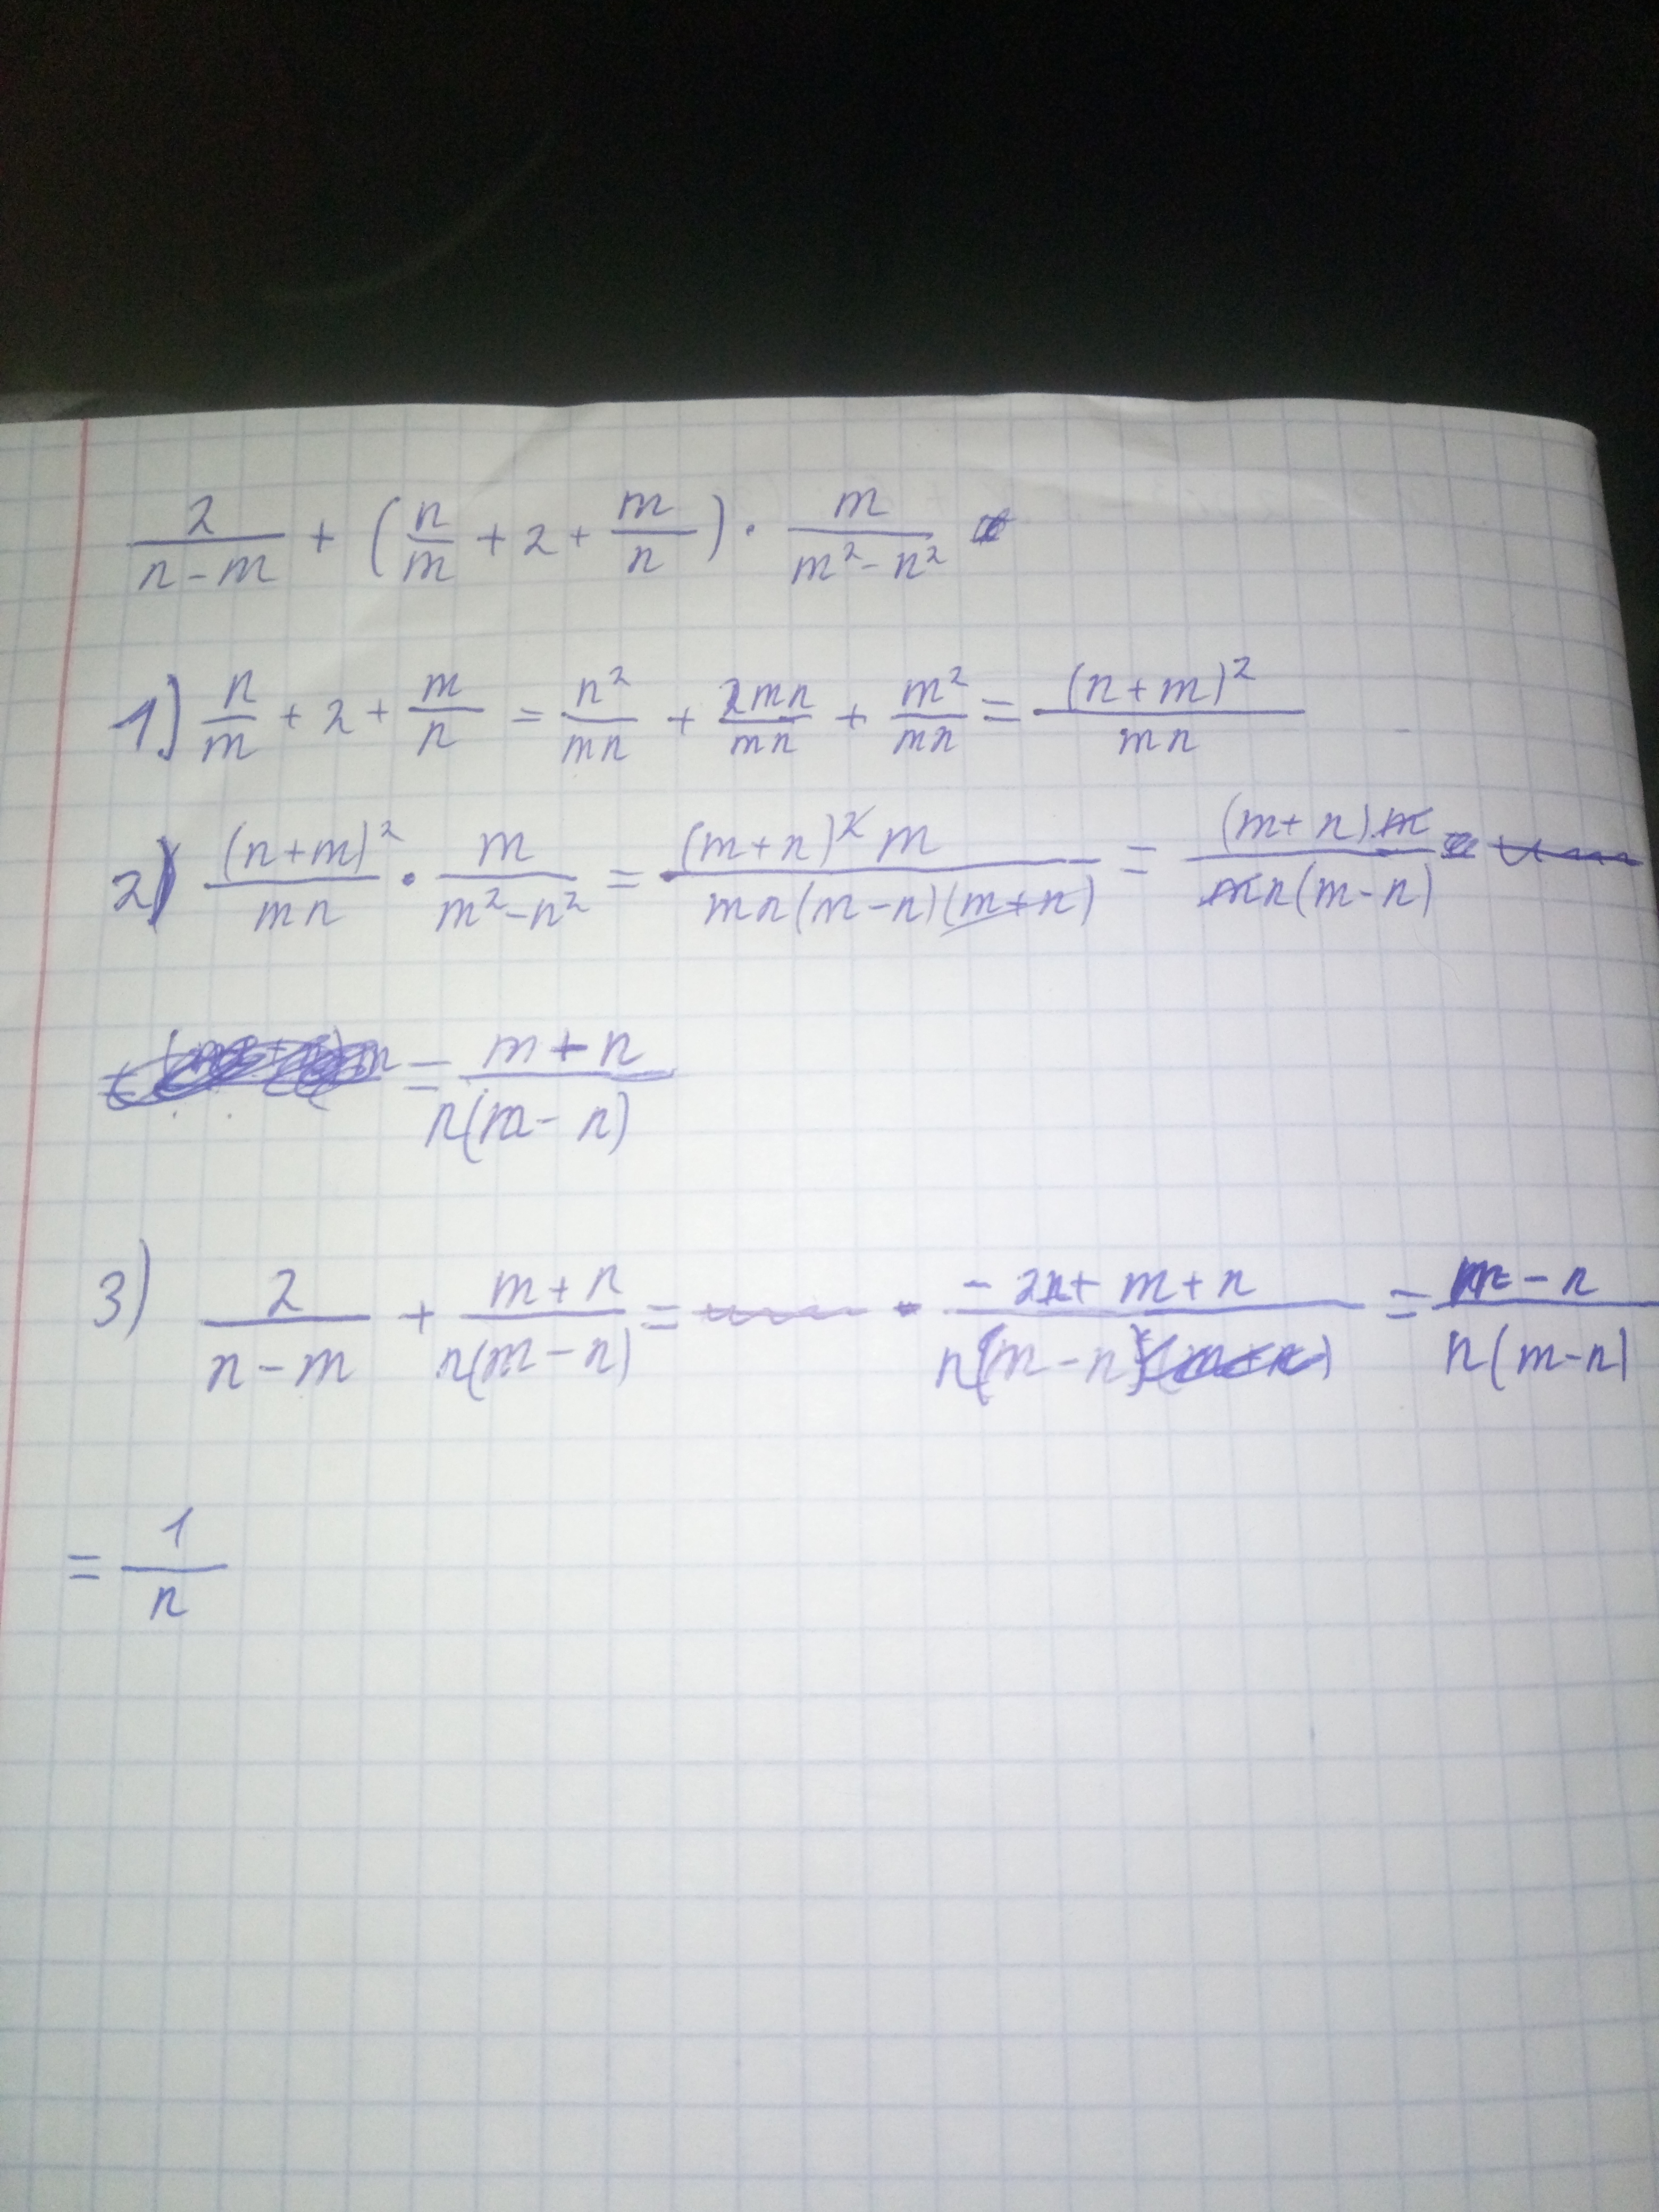 2/(n-m) + (n/m + 2 + m/n) · m/(m²-n²)
1) n/m + 2 + m/n = n²/mn + 2mn/mn + m²/mn = (n+m)²/mn
2) (n+m)²/mn · m/(m²-n²) = (m+n)²m/mn(m-n)(m+n) = (m+n)m/mn(m-n)
= m+n/n(m-n)
3) 2/(n-m) + m+n/n(m-n) = -2n+m+n/n(m-n) = m-n/n(m-n)
= 1/n